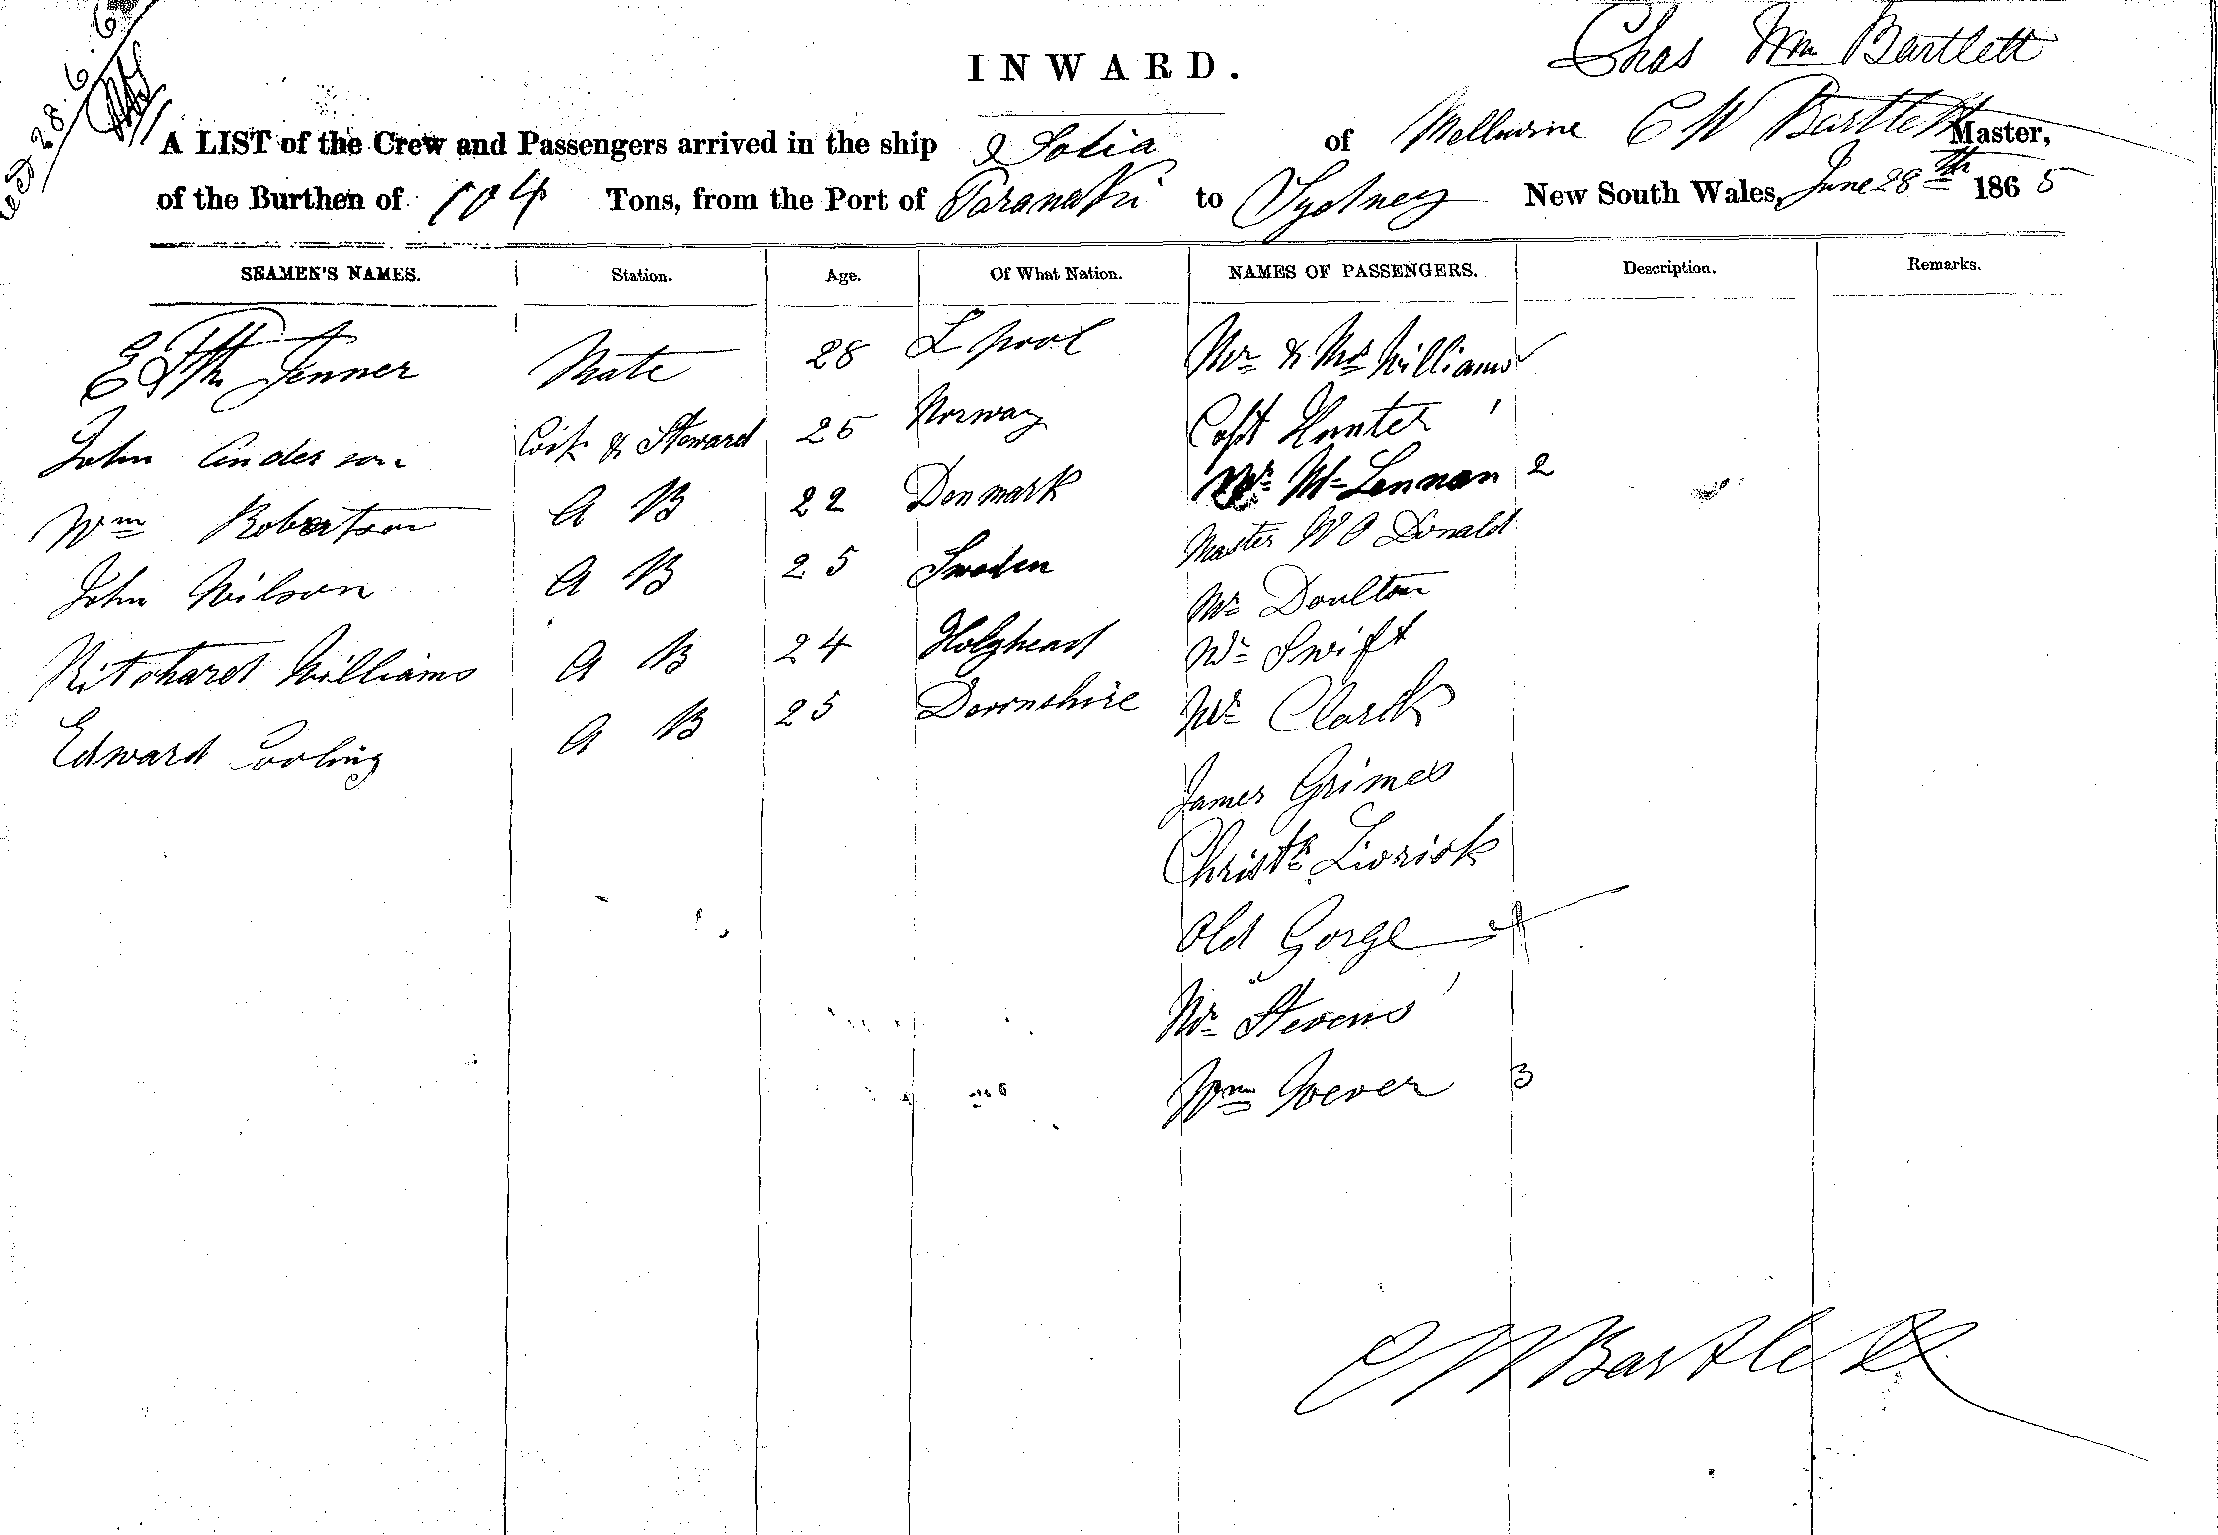 Chas Wm Bartlett
INWARD.
A LIST of the Crew and Passengers arrived in the ship of Melbourne C W Bartlett Master,
of the Burthen of 104 Tons, from the Port of Taranaki to Sydney New South Wales, June 28th 1865
SEAMEN'S NAMES. Station. Age. Of What Nation. NAMES OF PASSENGERS. Description. Remarks.
Jenner Mate 28 L pool Mr & Mrs Williams
John Anderson Cook & Steward 25 Norway Capt Hunter
Wm Robertson A B 22 Denmark Mr Mc Lennan 2
John Wilson A B 25 Sweden Master Donald
Ritchard Williams A B 24 Holyhead Mr Doulton
Edward A B 25 Devonshire Mr Swift
Mr Clark
James Grimes
Christr
Old Gorge
Mr Stevens
Wm Wever 3
C W Bartlett